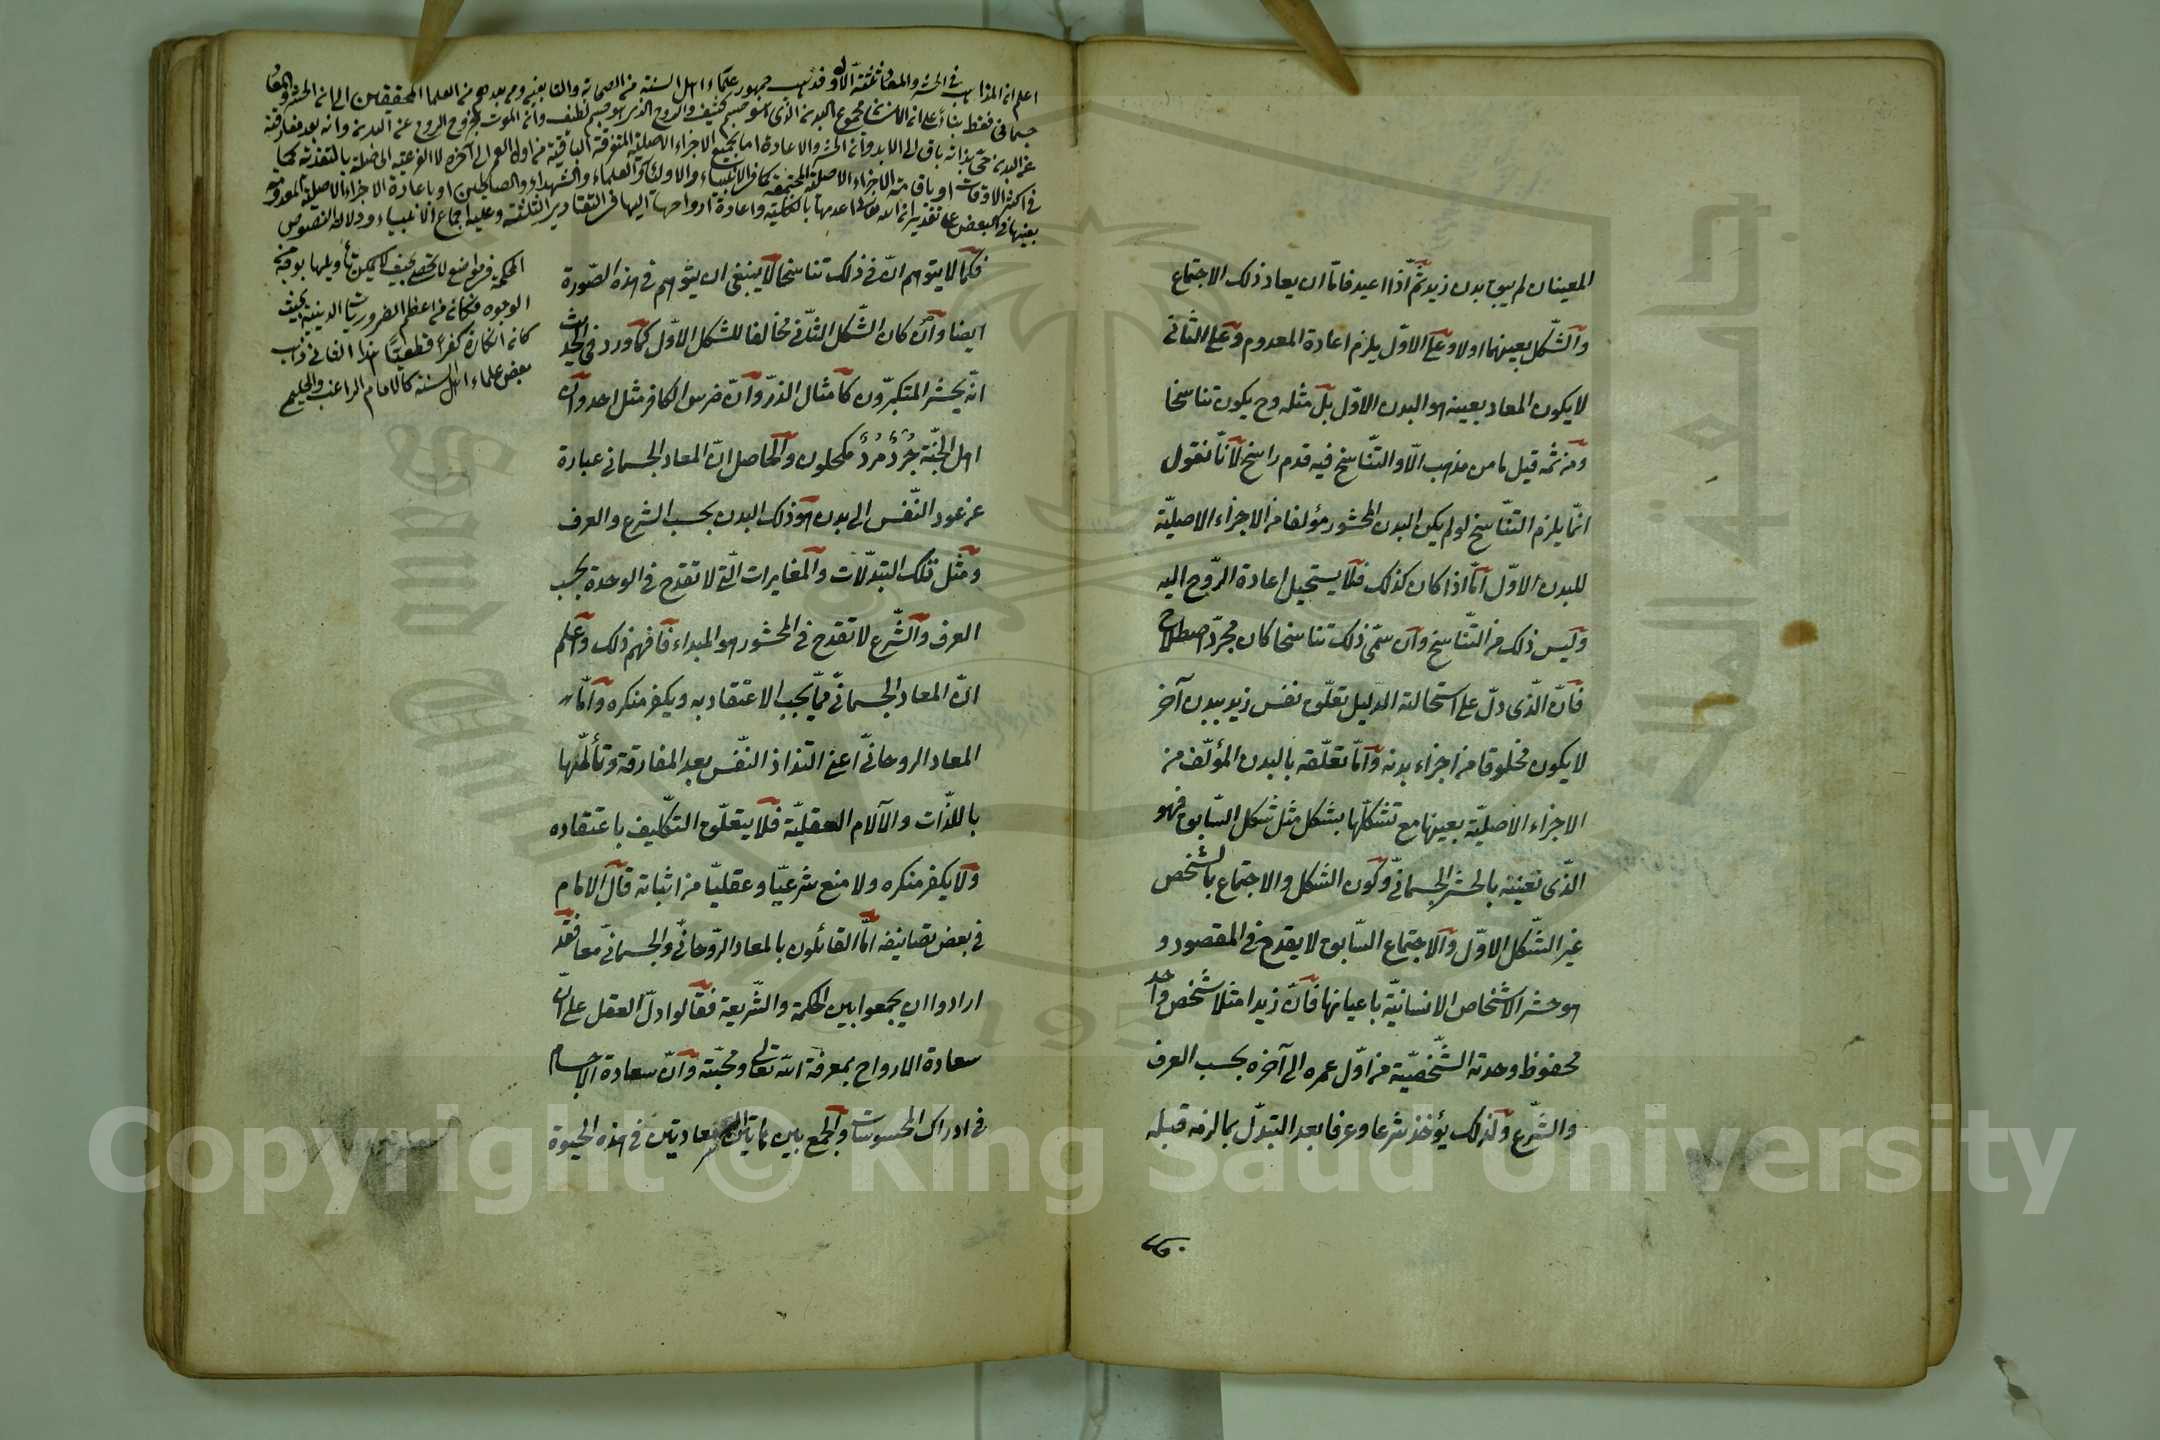 المعينان لم يبق بدن زيد ثم اذا اعيد فاما ان يعاد ذلك الاجتماع
والشكل بعينهما اولا وعلى الاول يلزم اعادة المعدوم وعلى الثانى
لا يكون المعاد بعينه هو البدن الاول بل مثله وح يكون تناسخا
ومن ثمه قيل ما من مذهب الا وللتناسخ فيه قدم راسخ لانا نقول
انما يلزم التناسخ لو لم يكن البدن المحشور مؤلفا من الاجزاء الاصلية
للبدن الاول اما اذا كان كذلك فلا يستحيل اعادة الروح اليه
وليس ذلك من التناسخ وان سمى ذلك تناسخا كان مجرد اصطلاح
فان الذى دل على استحالته الدليل تعلق نفس زيد ببدن آخر
لا يكون مخلوقا من اجزاء بدنه واما تعلقه بالبدن المؤلف من
الاجزاء الاصلية بعينها مع تشكلها بشكل مثل شكل السابق فهو
الذى نعنيه بالحشر الجسمانى وكون الشكل والاجتماع بالشخص
غير الشكل الاول والاجتماع السابق لا يقدح فى المقصود و
هو حشر الاشخاص الانسانية باعيانها فان زيدا مثلا شخص واحد
محفوظ وحدته الشخصية من اول عمره الى آخره بحسب العرف
والشرع ولذلك يؤخذ شرعا وعرفا بعد التبدل بما لزمه قبله
اعلم ان المذاهب فى الحشر والمعاد ثلثة الاول وقد ذهب جمهور علماء اهل السنة من الصحابة والتابعين ومن بعدهم من العلماء المحققين الى ان الحشر والمعاد
جسمانى فقط بناء على ان الانسان مجموع البدن الذى هو جسم كثيف والروح الذى هو جسم لطيف وان الموت خروج الروح عن البدن وانه بعد مفارقته
عن البدن حى بذاته باق الى الابد وان الحشر والاعادة اما بجمع الاجزاء الاصلية المتفرقة الباقية من اول العمر الى آخره لا الفرعية الحاصلة بالتغذية كما
فى اكثر الاوقات او باقامة الاجزاء الاصلية المجتمعة كما فى الانبياء والاولياء والعلماء والشهداء والصالحين او باعادة الاجزاء الاصلية المعدومة
بعينها فى البعض على تقدير ان الله تعالى اعدمها بالكلية واعادة ارواحها اليها فى التقادير الثلثة وعليه اجماع الانبياء ودلالة النصوص
المحكمة فى مواضع لا تحصى بحيث لا يمكن تأويلها بوجه من
الوجوه فكانه من اعظم الضروريات الدينية بحيث
كان انكاره كفرا قطعيا هذا الثانى ذهب
بعض علماء اهل السنة كالامام الراغب والحليمى
فكما لا يتوهم ان فى ذلك تناسخا لا ينبغى ان يتوهم فى هذه الصورة
ايضا وان كان الشكل الثانى مخالفا للشكل الاول كما ورد فى الحديث
انه يحشر المتكبرون كامثال الذر وان ضرس الكافر مثل احد وان
اهل الجنة جرد مرد مكحلون والحاصل ان المعاد الجسمانى عبارة
عن عود النفس الى بدن هو ذلك البدن بحسب الشرع والعرف
ومثل تلك التبدلات والمغايرات التى لا تقدح فى الوحدة بحسب
العرف والشرع لا تقدح فى المحشور هو المبداء فافهم ذلك واعلم
ان المعاد الجسمانى مما يجب الاعتقاد به ويكفر منكره واما
المعاد الروحانى اعنى التذاذ النفس بعد المفارقة وتألمها
باللذات والآلام العقلية فلا يتعلق التكليف باعتقاده
ولا يكفر منكره ولا منع شرعيا وعقليا من اثباته قال الامام
فى بعض تصانيفه اما القائلون بالمعاد الروحانى والجسمانى معا فقد
ارادوا ان يجمعوا بين الحكمة والشريعة فقالوا دل العقل على ان
سعادة الارواح بمعرفة الله تعالى ومحبته وان سعادة الاجسام
فى ادراك المحسوسات والجمع بين هاتين السعادتين فى هذه الحيوة
Copyright © King Saud University